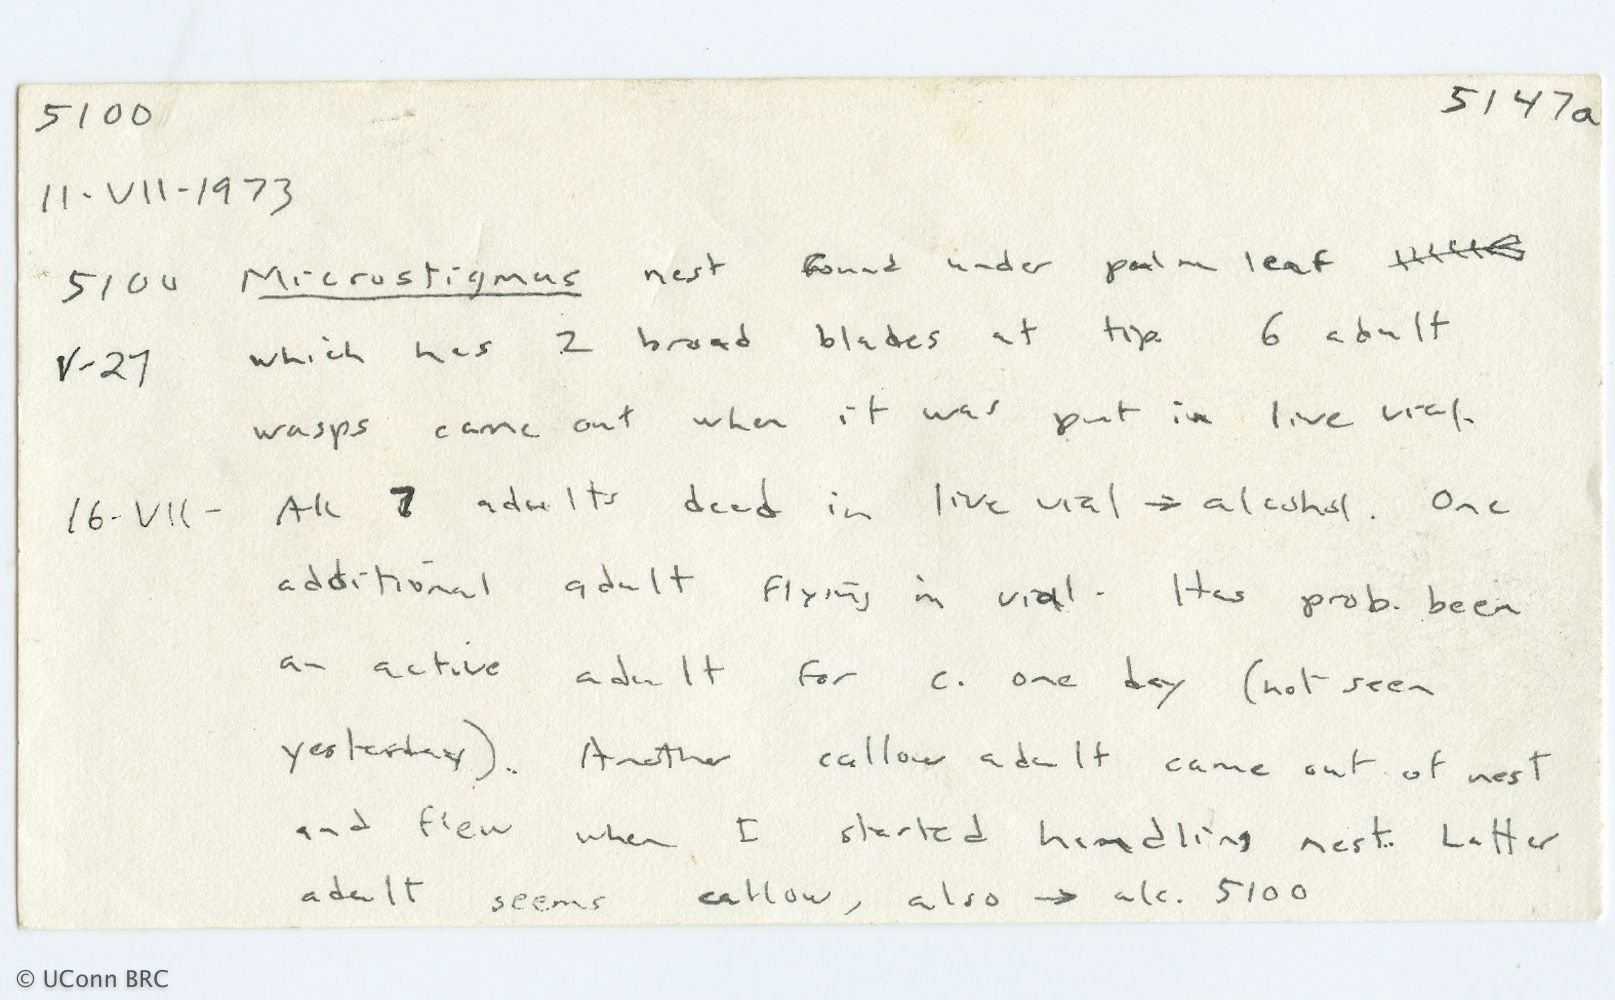 5100 5147a
11-VII-1973
5100 Microstigmus nest found under palm leaf
V-27 which has 2 broad blades at tip. 6 adult
wasps came out when it was put in live vial.
16-VII- All 7 adults dead in live vial → alcohol. One
additional adult flying in vial. Has prob. been
an active adult for c. one day (not seen
yesterday). Another callow adult came out of nest
and flew when I started handling nest. Latter
adult seems callow, also → alc. 5100
© UConn BRC